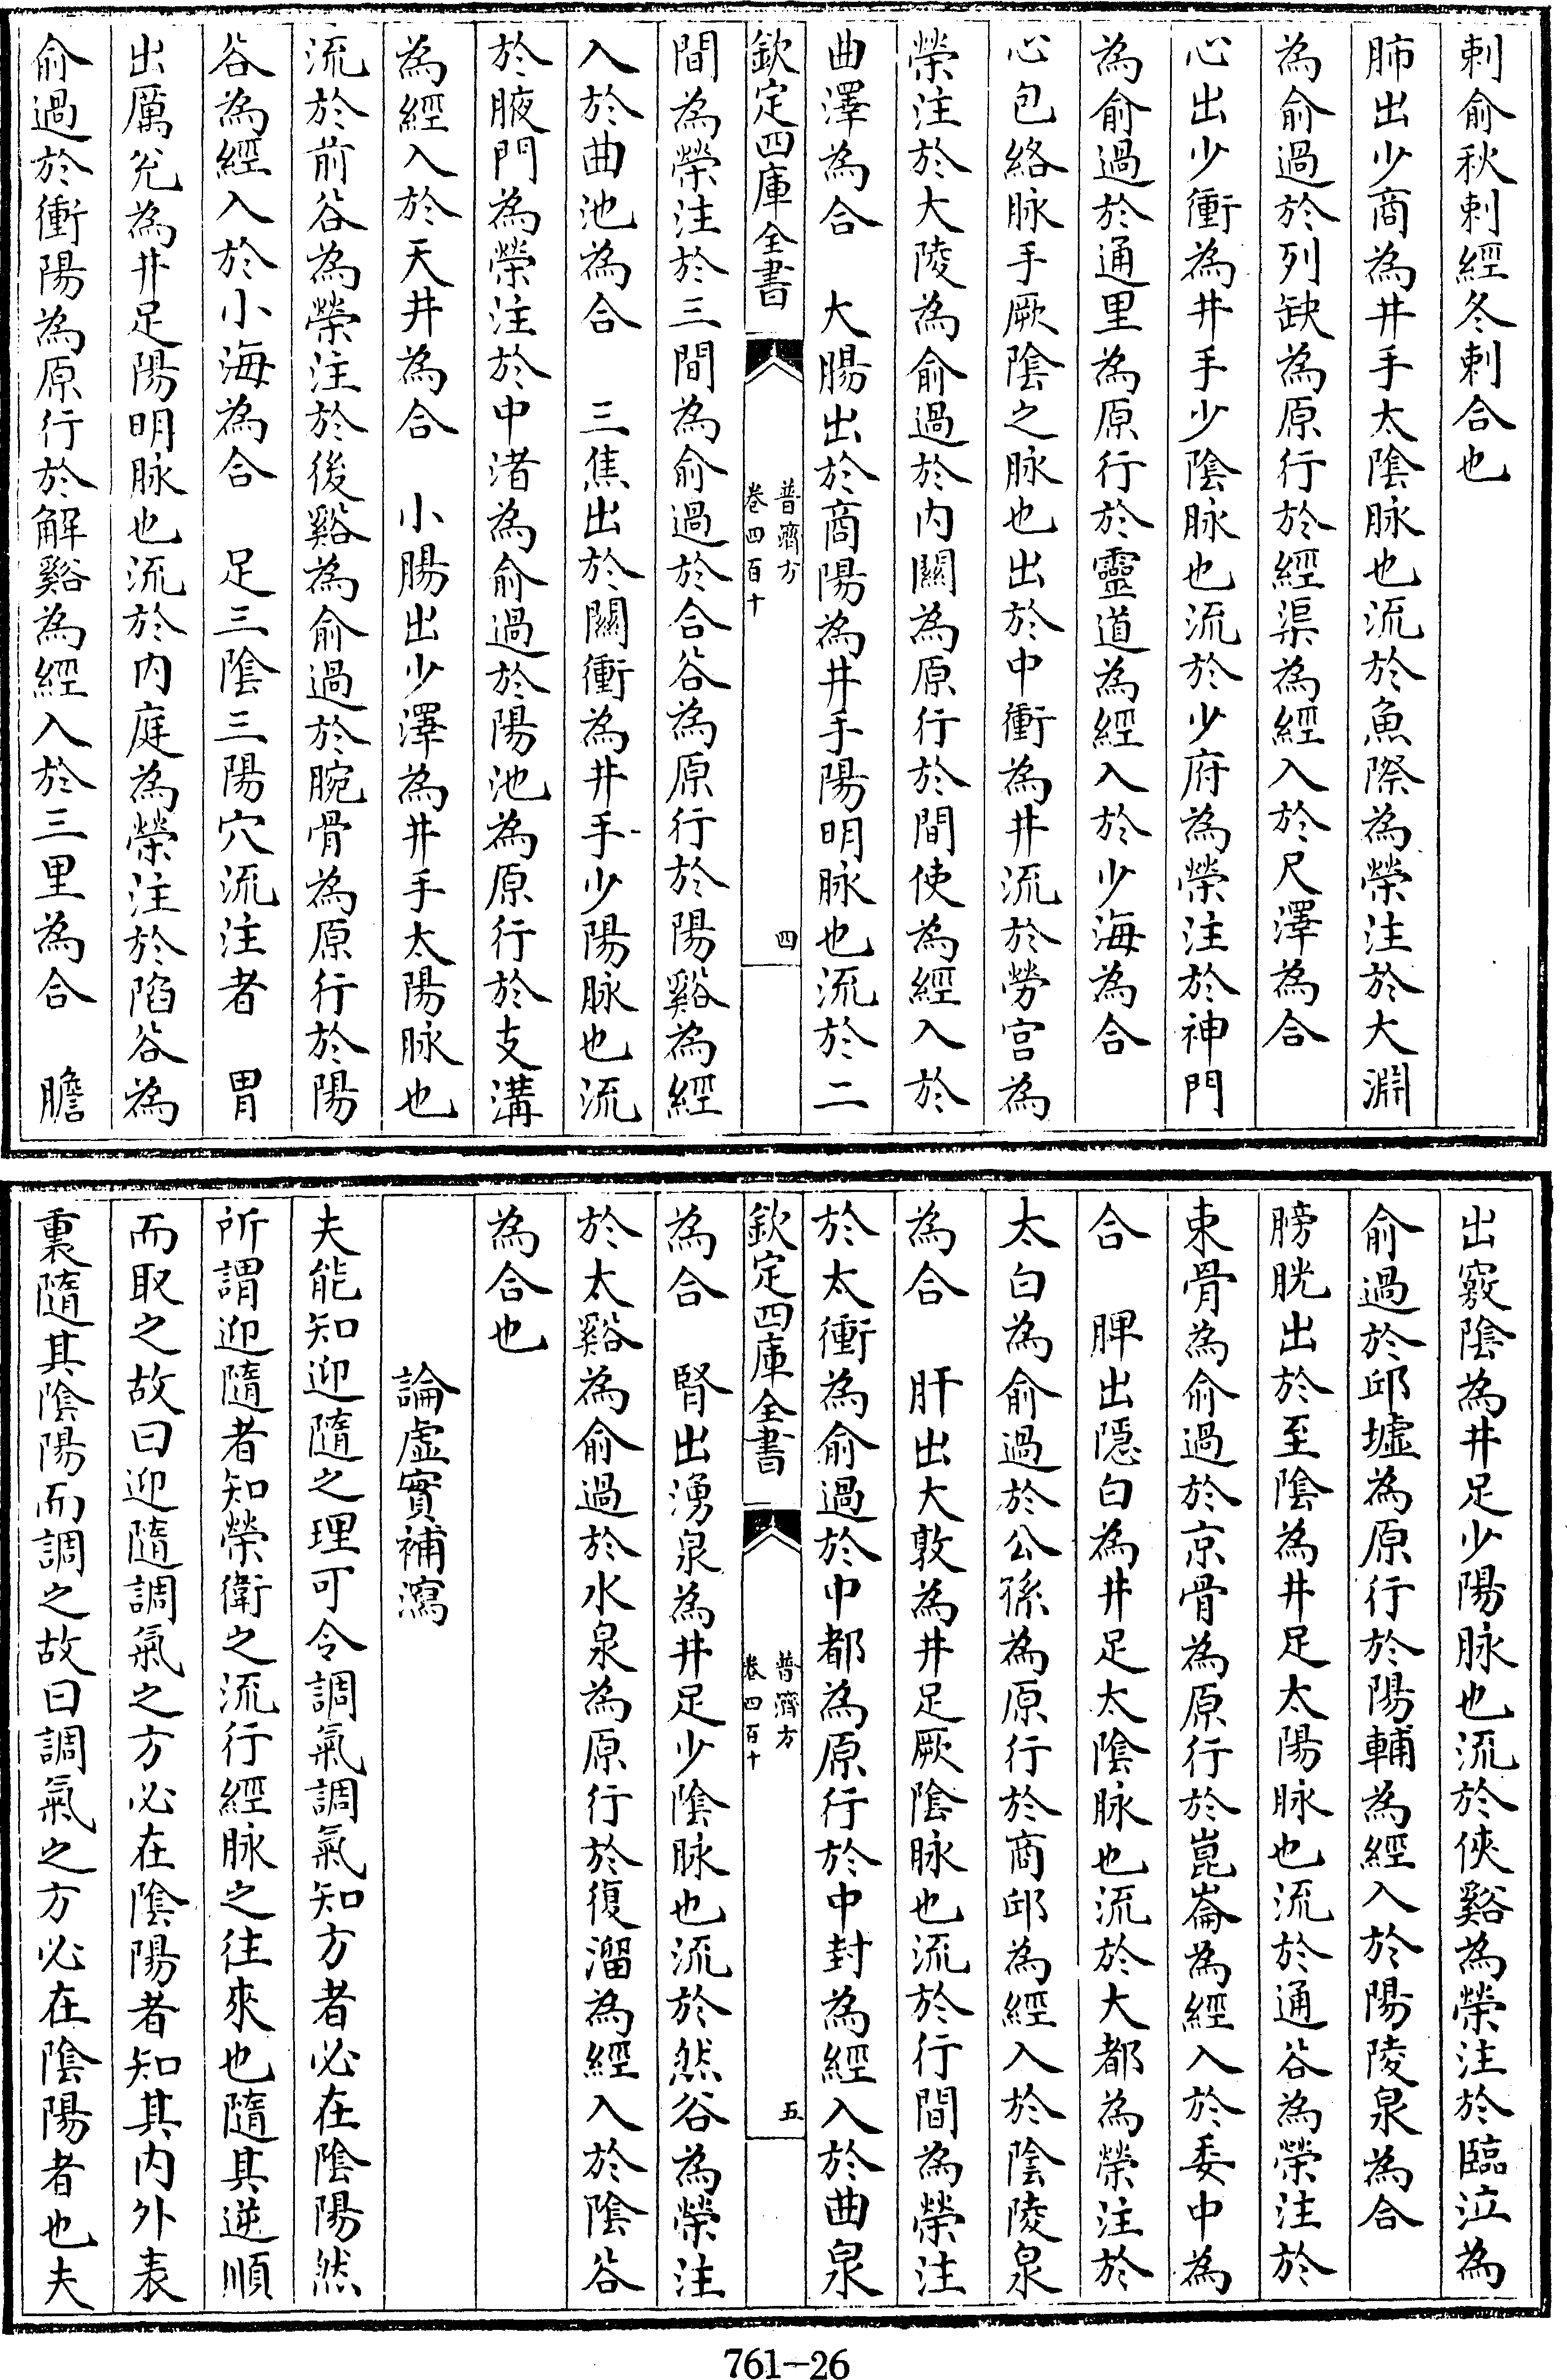 刺俞秋刺經冬刺合也
肺出少商為井手太陰脉也流於魚際為榮注於大淵
為俞過於列缺為原行於經渠為經入於尺澤為合
心出少衝為井手少陰脉也流於少府為榮注於神門
為俞過於通里為原行於靈道為經入於少海為合
心包絡脉手厥陰之脉也出於中衝為井流於勞宫為
榮注於大陵為俞過於内關為原行於間使為經入於
曲澤為合　大腸出於商陽為井手陽明脉也流於二
欽定四庫全書
普濟方
卷四百十
四
間為榮注於三間為俞過於合谷為原行於陽谿為經
入於曲池為合　三焦出於關衝為井手少陽脉也流
於腋門為榮注於中渚為俞過於陽池為原行於支溝
為經入於天井為合　小腸出少澤為井手太陽脉也
流於前谷為榮注於後谿為俞過於腕骨為原行於陽
谷為經入於小海為合　足三陰三陽穴流注者　胃
出厲兊為井足陽明脉也流於内庭為榮注於陷谷為
俞過於衝陽為原行於解谿為經入於三里為合　膽
出竅陰為井足少陽脉也流於俠谿為榮注於臨泣為
俞過於邱墟為原行於陽輔為經入於陽陵泉為合
膀胱出於至陰為井足太陽脉也流於通谷為榮注於
束骨為俞過於京骨為原行於崑崙為經入於委中為
合　脾出隱白為井足太陰脉也流於大都為榮注於
太白為俞過於公孫為原行於商邱為經入於陰陵泉
為合　肝出大敦為井足厥陰脉也流於行間為榮注
於太衝為俞過於中都為原行於中封為經入於曲泉
欽定四庫全書
普濟方
卷四百十
五
為合　腎出湧泉為井足少陰脉也流於然谷為榮注
於太谿為俞過於水泉為原行於復溜為經入於陰谷
為合也
論虛實補瀉
夫能知迎隨之理可令調氣調氣知方者必在陰陽然
所謂迎隨者知榮衛之流行經脉之往來也隨其逆順
而取之故曰迎隨調氣之方必在陰陽者知其内外表
裏隨其陰陽而調之故曰調氣之方必在陰陽者也夫
761-26